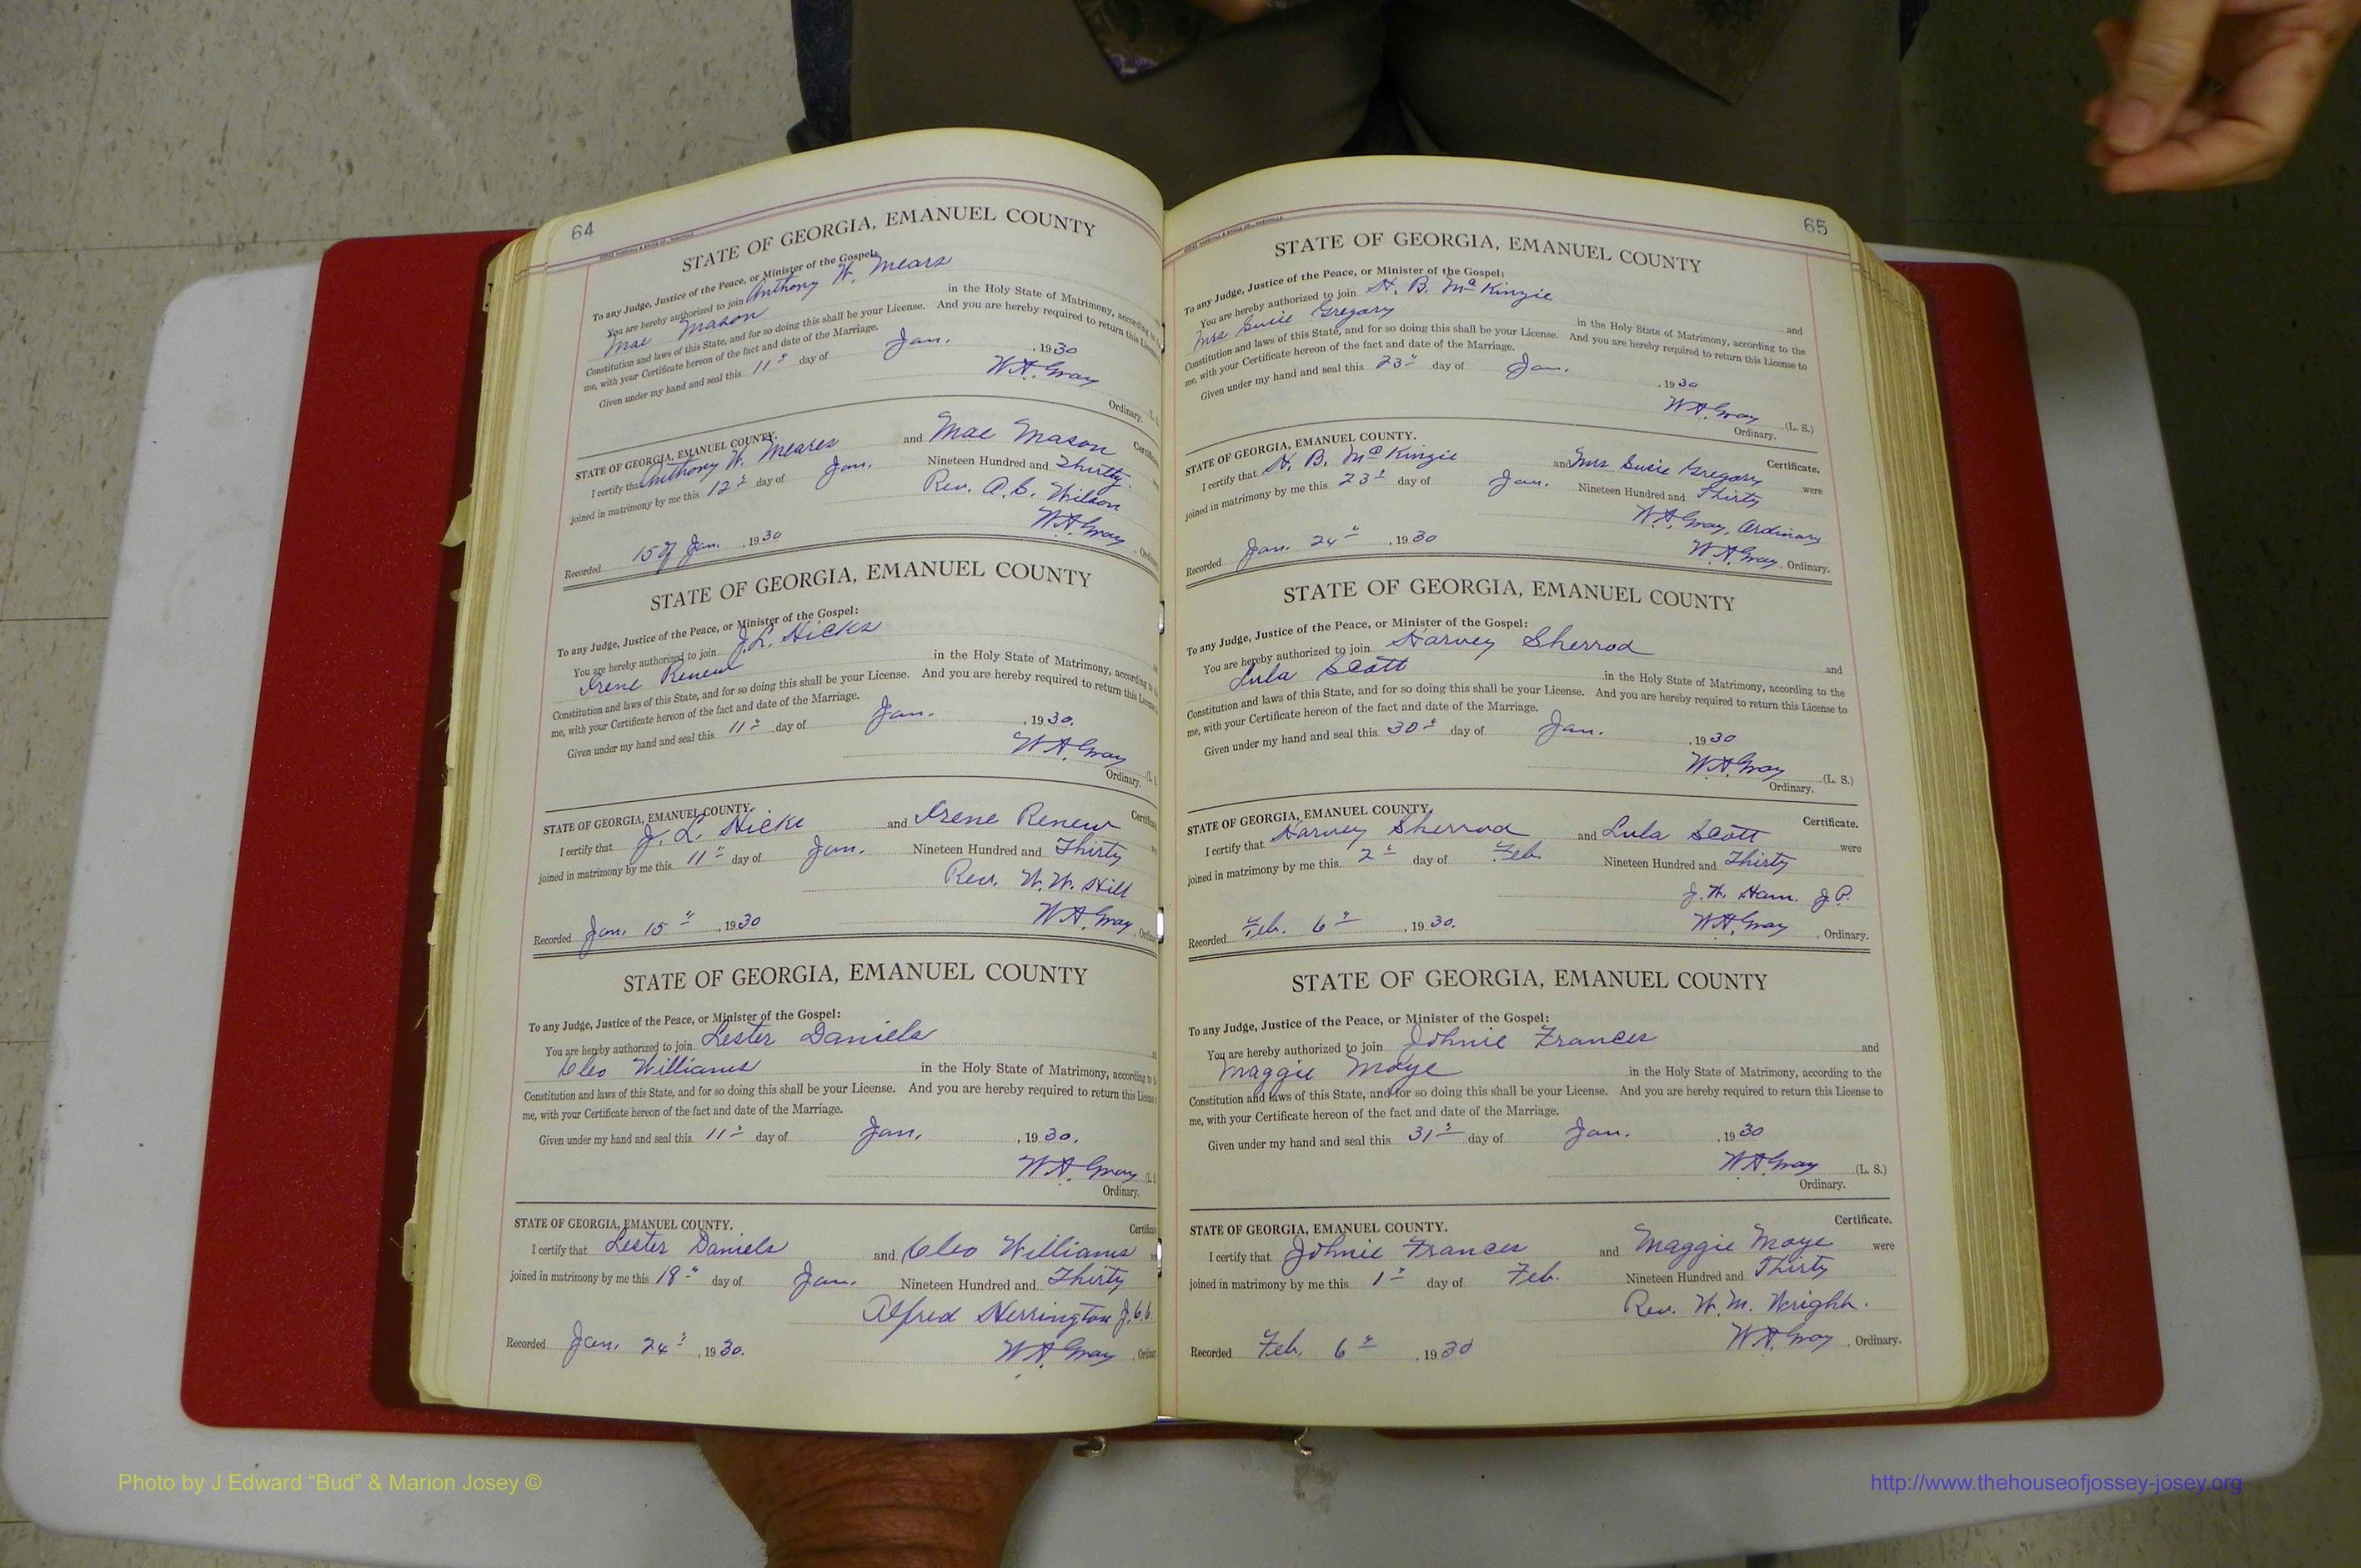 64
STATE OF GEORGIA, EMANUEL COUNTY
To any Judge, Justice of the Peace, or Minister of the Gospel:
You are hereby authorized to join Anthony W. Mears
Mae Mason in the Holy State of Matrimony, according to
Constitution and laws of this State, and for so doing this shall be your License. And you are hereby required to return this License
me, with your Certificate hereon of the fact and date of the Marriage.
Given under my hand and seal this 11" day of Jan. , 1930
W.H. Gray (L.
Ordinary.
STATE OF GEORGIA, EMANUEL COUNTY. Certificate
I certify that Anthony W. Meares and Mae Mason
joined in matrimony by me this 12" day of Jan. Nineteen Hundred and Thirty.
Rev. A.C. Wilson
W.H. Gray
Recorded 15 of Jan. , 1930 , Ordin
STATE OF GEORGIA, EMANUEL COUNTY
To any Judge, Justice of the Peace, or Minister of the Gospel:
You are hereby authorized to join J.L. Hicks
Irene Renew in the Holy State of Matrimony, according to
Constitution and laws of this State, and for so doing this shall be your License. And you are hereby required to return this License
me, with your Certificate hereon of the fact and date of the Marriage.
Given under my hand and seal this 11" day of Jan. , 1930.
W.H. Gray (L.
Ordinary.
STATE OF GEORGIA, EMANUEL COUNTY. Certificate
I certify that J. L. Hicks and Irene Renew
joined in matrimony by me this 11" day of Jan. Nineteen Hundred and Thirty
Rev. W.W. Hill
Recorded Jan. 15" , 1930 W.H. Gray , Ordin
STATE OF GEORGIA, EMANUEL COUNTY
To any Judge, Justice of the Peace, or Minister of the Gospel:
You are hereby authorized to join Lester Daniels
Cleo Williams in the Holy State of Matrimony, according to
Constitution and laws of this State, and for so doing this shall be your License. And you are hereby required to return this License
me, with your Certificate hereon of the fact and date of the Marriage.
Given under my hand and seal this 11" day of Jan. , 1930.
W.H. Gray (L.
Ordinary.
STATE OF GEORGIA, EMANUEL COUNTY. Certificate
I certify that Lester Daniels and Cleo Williams
joined in matrimony by me this 18" day of Jan. Nineteen Hundred and Thirty
Alfred Herrington J.C.C.
Recorded Jan. 24" , 1930. W.H. Gray , Ordin
65
STATE OF GEORGIA, EMANUEL COUNTY
To any Judge, Justice of the Peace, or Minister of the Gospel:
You are hereby authorized to join H. B. McKinzie and
Mrs Susie Gregory in the Holy State of Matrimony, according to the
Constitution and laws of this State, and for so doing this shall be your License. And you are hereby required to return this License to
me, with your Certificate hereon of the fact and date of the Marriage.
Given under my hand and seal this 23" day of Jan. , 1930
W.H. Gray (L. S.)
Ordinary.
STATE OF GEORGIA, EMANUEL COUNTY. Certificate.
I certify that H. B. McKinzie and Mrs Susie Gregory were
joined in matrimony by me this 23" day of Jan. Nineteen Hundred and Thirty
W.H. Gray, Ordinary
Recorded Jan. 24" , 1930 W.H. Gray , Ordinary.
STATE OF GEORGIA, EMANUEL COUNTY
To any Judge, Justice of the Peace, or Minister of the Gospel:
You are hereby authorized to join Harvey Sherrod and
Lula Scott in the Holy State of Matrimony, according to the
Constitution and laws of this State, and for so doing this shall be your License. And you are hereby required to return this License to
me, with your Certificate hereon of the fact and date of the Marriage.
Given under my hand and seal this 30" day of Jan. , 1930
W.H. Gray (L. S.)
Ordinary.
STATE OF GEORGIA, EMANUEL COUNTY. Certificate.
I certify that Harvey Sherrod and Lula Scott were
joined in matrimony by me this 2" day of Feb. Nineteen Hundred and Thirty
J.H. Ham. J.P.
Recorded Feb. 6" , 1930. W.H. Gray , Ordinary.
STATE OF GEORGIA, EMANUEL COUNTY
To any Judge, Justice of the Peace, or Minister of the Gospel:
You are hereby authorized to join Johnie Frances and
Maggie Moye in the Holy State of Matrimony, according to the
Constitution and laws of this State, and for so doing this shall be your License. And you are hereby required to return this License to
me, with your Certificate hereon of the fact and date of the Marriage.
Given under my hand and seal this 31" day of Jan. , 1930
W.H. Gray (L. S.)
Ordinary.
STATE OF GEORGIA, EMANUEL COUNTY. Certificate.
I certify that Johnie Frances and Maggie Moye were
joined in matrimony by me this 1" day of Feb. Nineteen Hundred and Thirty
Rev. W. M. Wright.
Recorded Feb. 6" , 1930 W.H. Gray , Ordinary.
Photo by J Edward “Bud” & Marion Josey ©
http://www.thehouseofjossey-josey.org